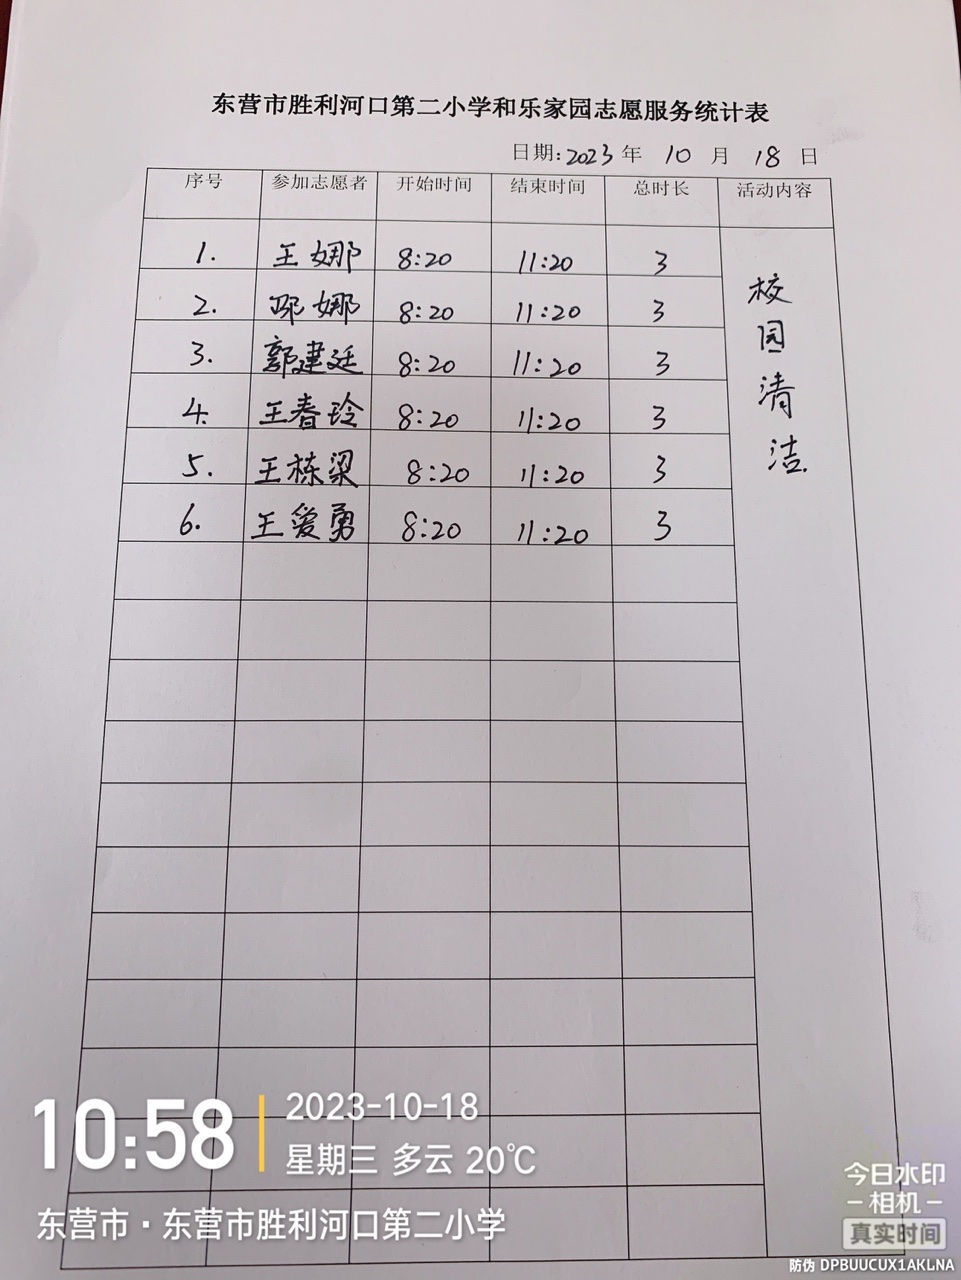 东营市胜利河口第二小学和乐家园志愿服务统计表
日期:2023年 10 月 18 日
序号 参加志愿者 开始时间 结束时间 总时长 活动内容
1. 王娜 8:20 11:20 3
2. 邵娜 8:20 11:20 3
3. 郭建廷 8:20 11:20 3
4. 王春玲 8:20 11:20 3
5. 王栋梁 8:20 11:20 3
6. 王爱勇 8:20 11:20 3
校园清洁
10:58
2023-10-18
星期三 多云 20℃
东营市·东营市胜利河口第二小学
今日水印
-相机-
真实时间
防伪 DPBUUCUX1AKLNA